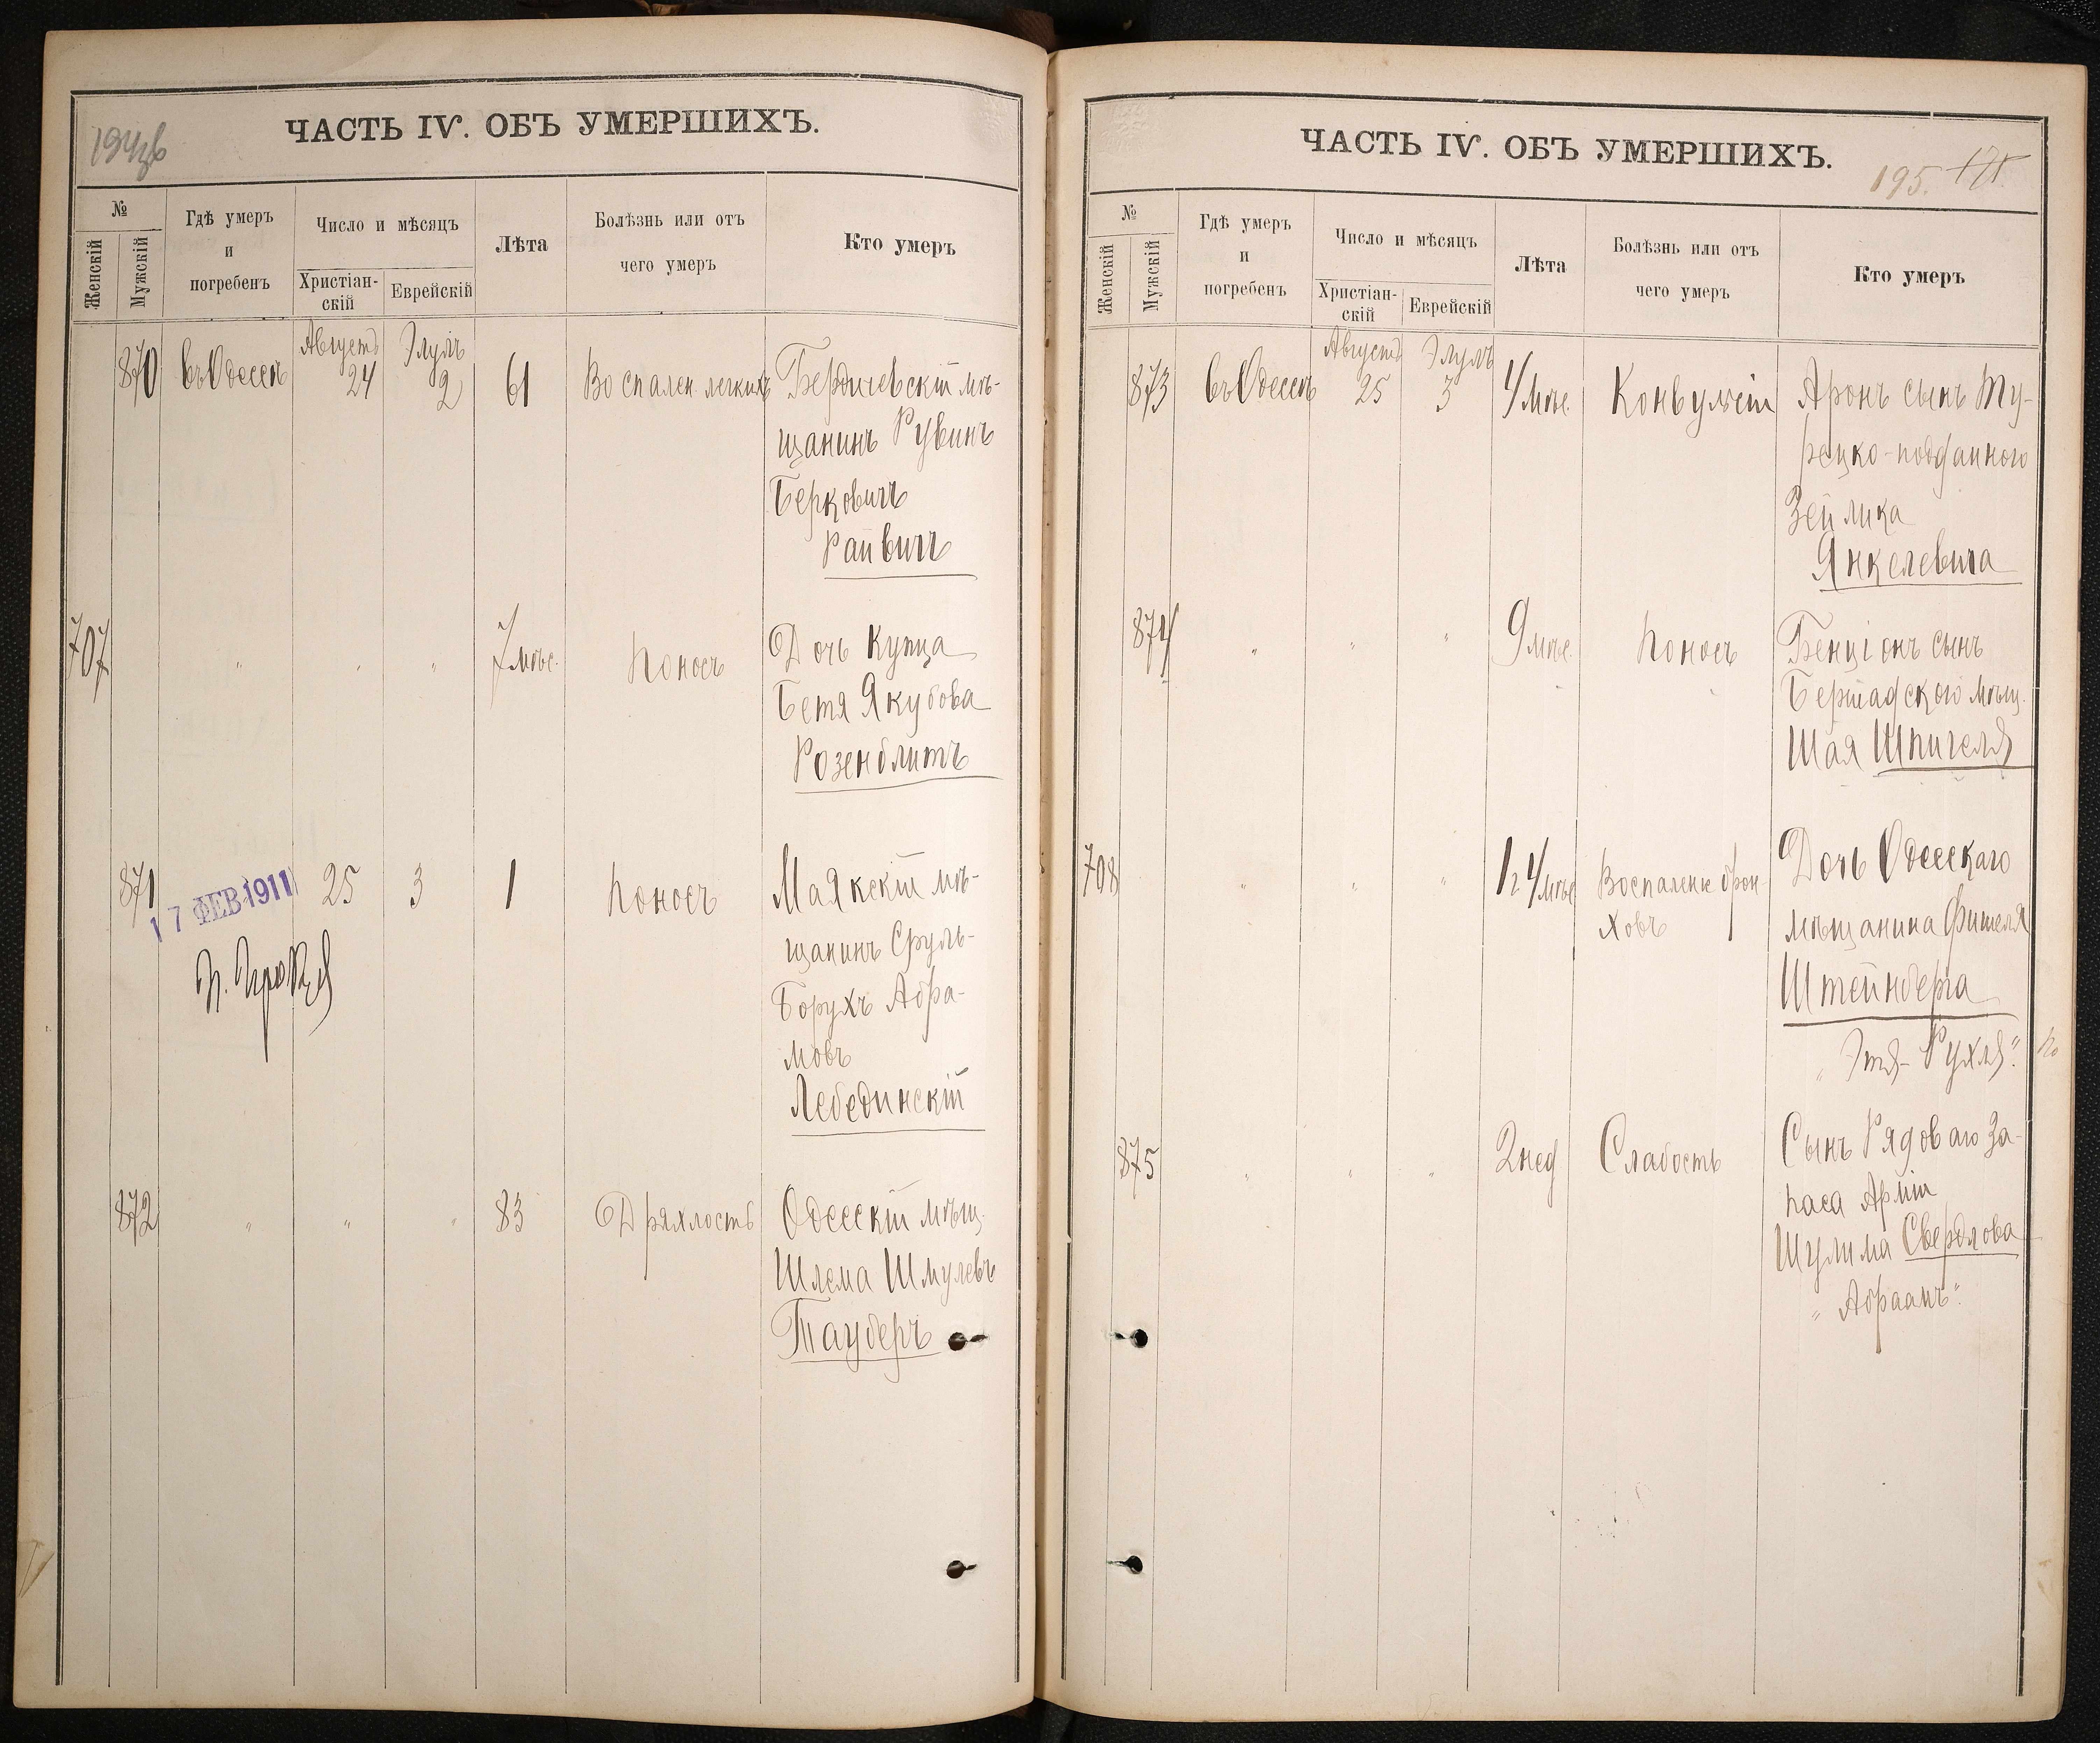 194 об
ЧАСТЬ IV. ОБЪ УМЕРШИХЪ.
№
Женскій
Мужскій
Гдѣ умеръ
и
погребенъ
Число и мѣсяцъ
Христіан-
скій
Еврейскій
Лѣта
Болѣзнь или отъ
чего умеръ
Кто умеръ
Августъ Элулъ
870 въ Одессѣ 24 2 61 Воспален. легкихъ Бердичевскій мѣ-
щанинъ Рувинъ
Берковичъ
Райвичъ
707 " " " 7 мѣс. Поносъ Дочь Купца
Бетя Якубова
Розенблитъ
871 25 3 1 Поносъ Маякскій мѣ-
17 ФЕВ 1911
щанинъ Сруль-
Борухъ Абра-
мовъ
Лебединскій
872 " " " 83 Дряхлость Одесскій мѣщ.
Шлема Шмулевъ
Тауберъ
ЧАСТЬ IV. ОБЪ УМЕРШИХЪ.
195.
№
Женскій
Мужскій
Гдѣ умеръ
и
погребенъ
Число и мѣсяцъ
Христіан-
скій
Еврейскій
Лѣта
Болѣзнь или отъ
чего умеръ
Кто умеръ
Августъ Элулъ
873 въ Одессѣ 25 3 4 мѣс. Конвульсіи Аронъ сынъ Ту-
рецко-подданного
Зейлика
Янкелевича
874 " " " 9 мѣс. Поносъ Бенціонъ сынъ
Бершадского мѣщ.
Шая Шпигеля
708 " " " 1 г 4 мѣс Воспаленіе брон-
ховъ
Дочь Одесскаго
мѣщанина Фишеля
Штейнберга
"Этя-Рухля".
875 " " " 2 нед Слабость Сынъ Рядоваго За-
паса Арміи
Шулима Свердлова
"Абраамъ".